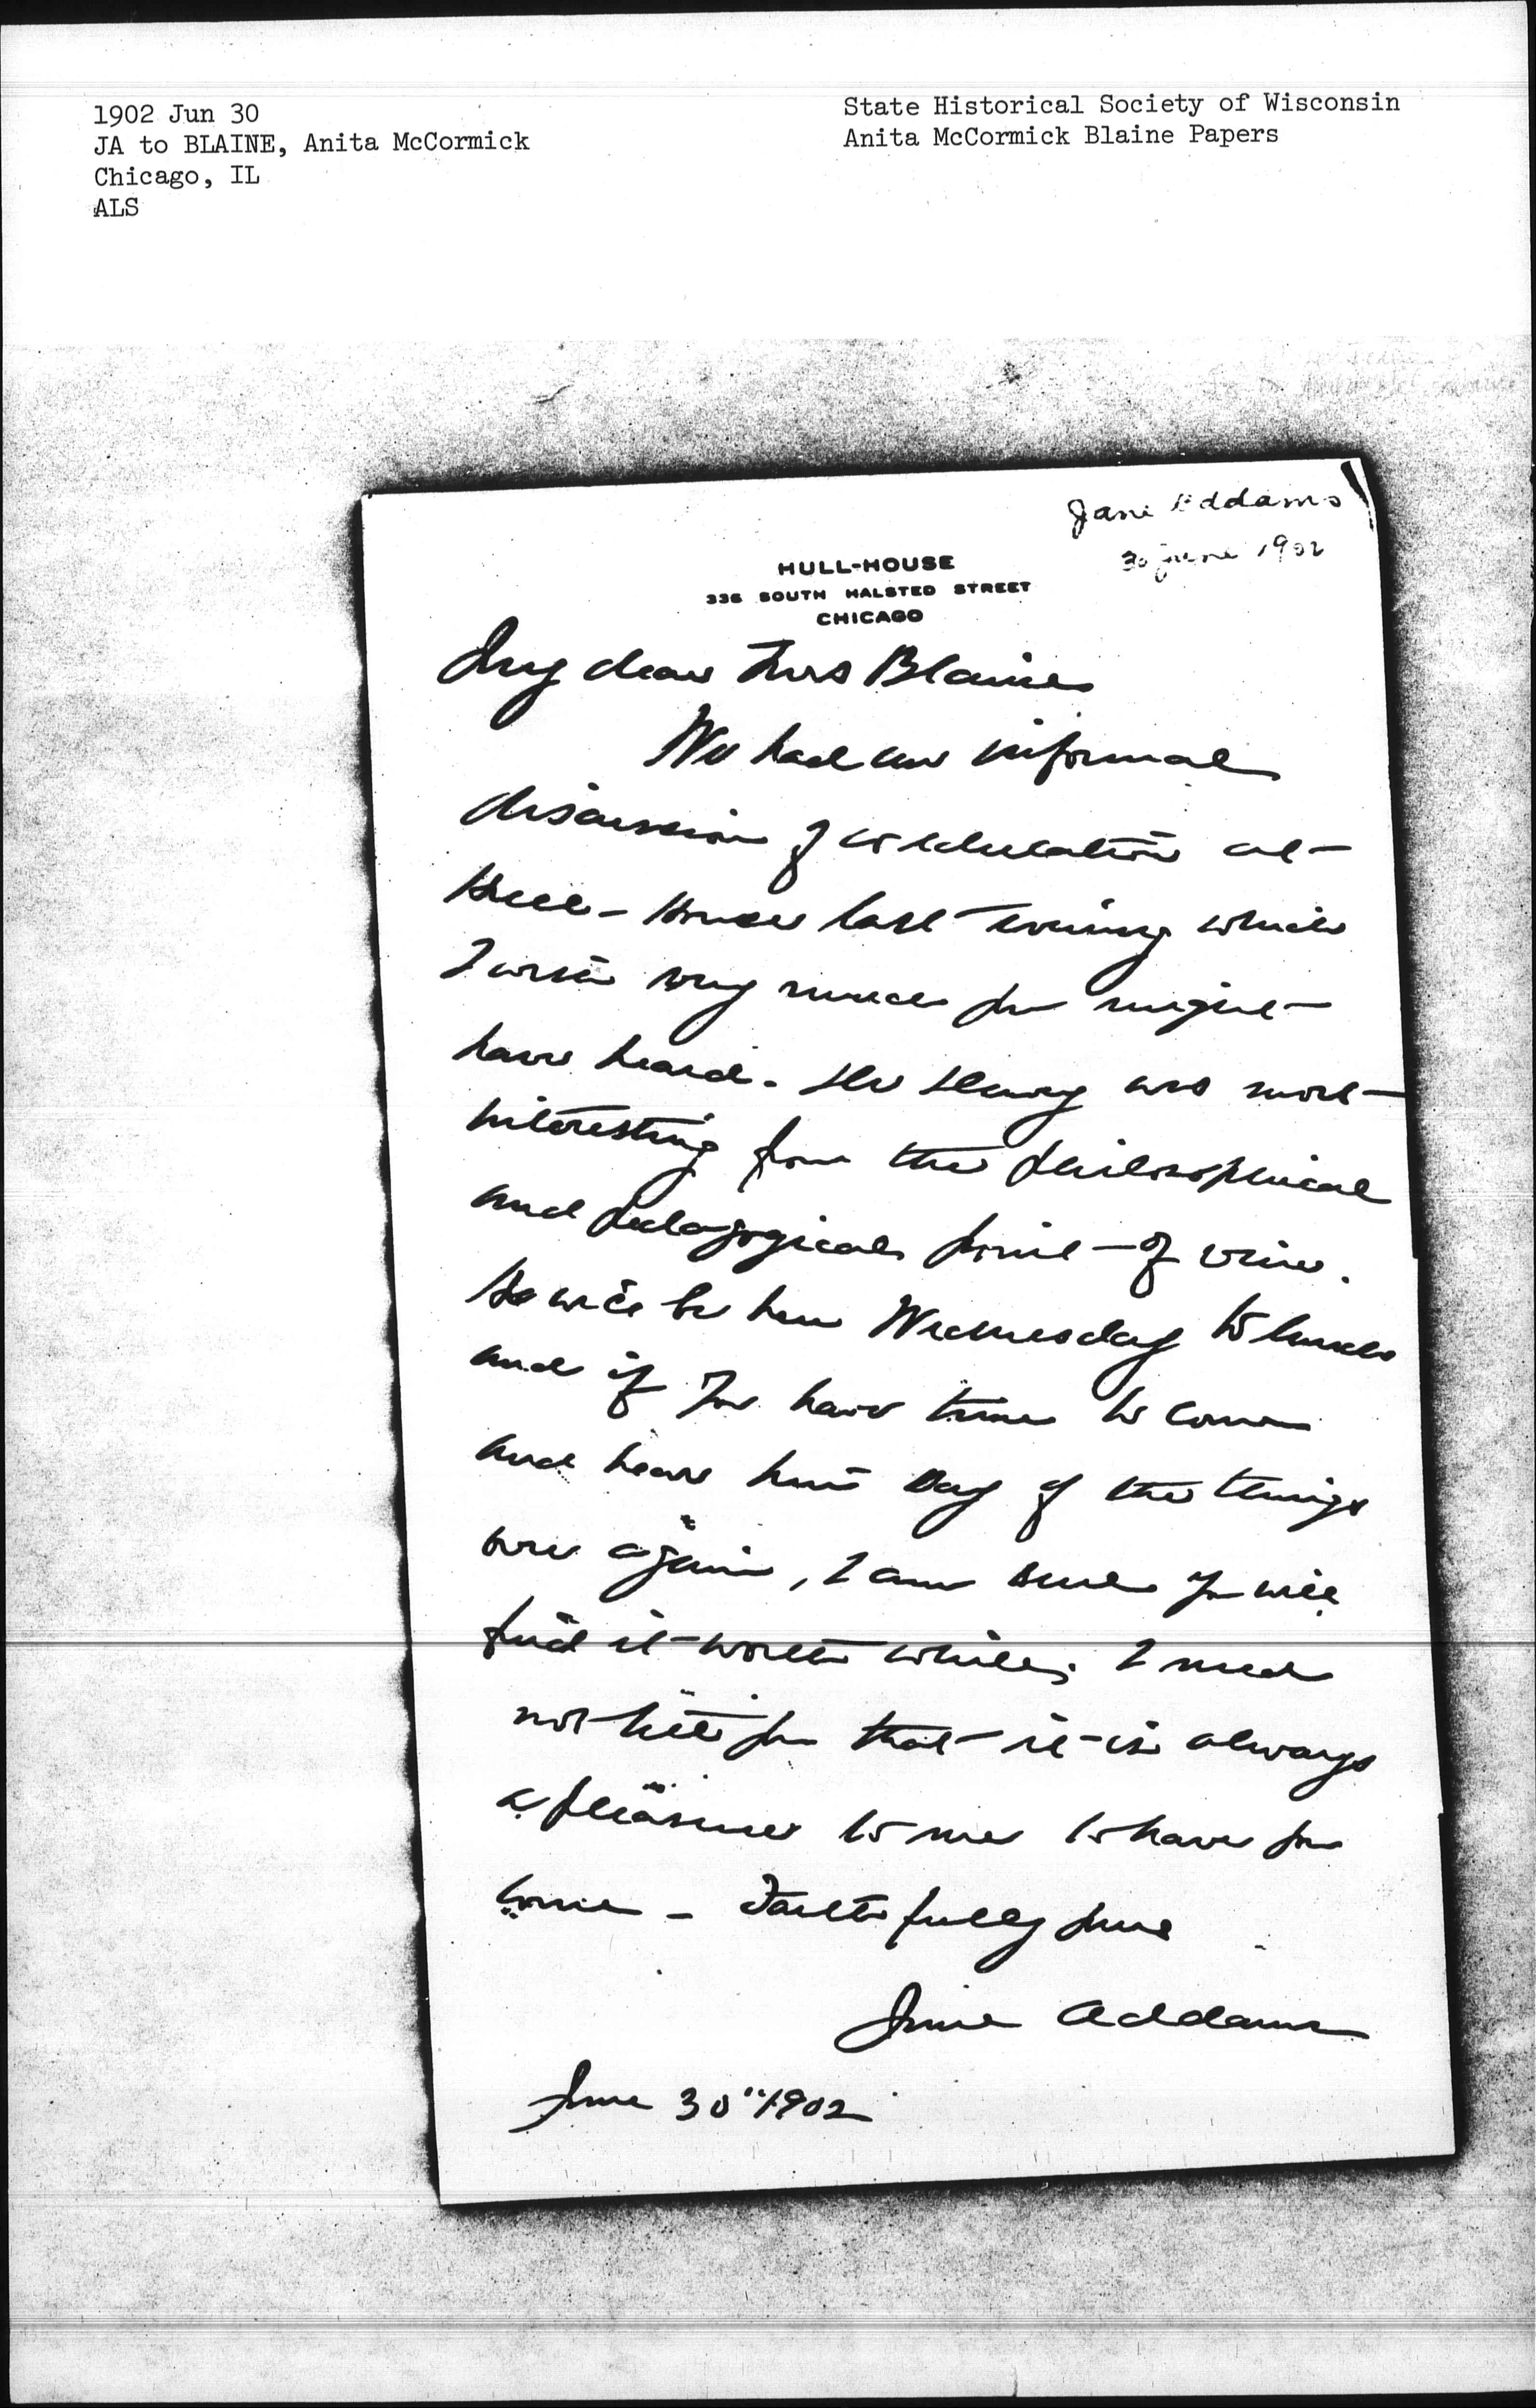 1902 Jun 30
JA to BLAINE, Anita McCormick
Chicago, IL
ALS
State Historical Society of Wisconsin
Anita McCormick Blaine Papers
Jane Addams
30 June 1902
HULL-HOUSE
335 SOUTH HALSTED STREET
CHICAGO
My dear Mrs Blaine
We had an informal
discussion of coeducation at
Hull-House last evening which
I wish very much you might
have heard. Dr Dewey was most
interesting from the philosophical
and pedagogical point of view.
He will be here Wednesday to lunch
and if you have time to come
and hear him say of the things
over again, I am sure you will
find it worth while; I need
not tell you that it is always
a pleasure to me to have you
come - Faithfully yours
Jane Addams
June 30" 1902